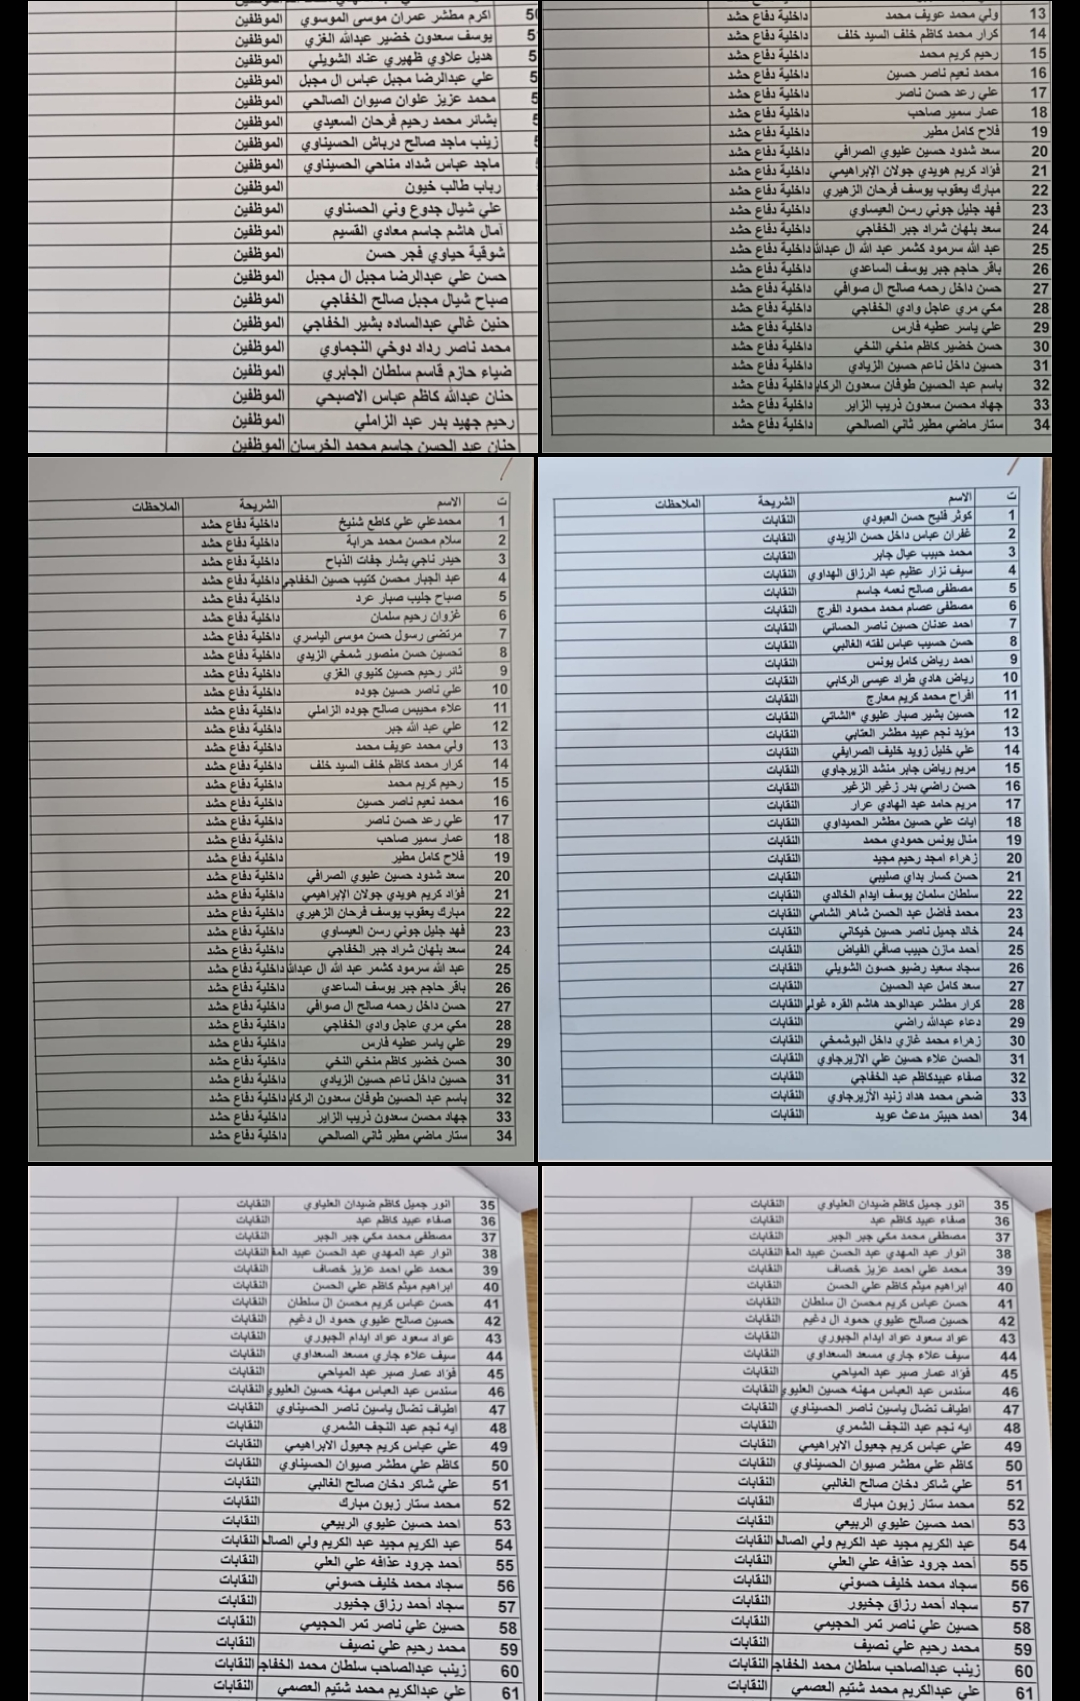 50 اكرم مطشر عمران موسى الموسوي الموظفين
5 يوسف سعدون خضير عبدالله الغزي الموظفين
5 هديل علاوي ظهيري عناد الشويلي الموظفين
5 علي عبدالرضا مجبل عباس ال مجبل الموظفين
5 محمد عزيز علوان صيوان الصالحي الموظفين
بشائر محمد رحيم فرحان السعيدي الموظفين
زينب ماجد صالح درباش الحسيناوي الموظفين
ماجد عباس شداد مناحي الحسيناوي الموظفين
رباب طالب خيون الموظفين
علي شيال جدوع وني الحسناوي الموظفين
آمال هاشم جاسم معادي القسيم الموظفين
شوقية حياوي فجر حسن الموظفين
حسن علي عبدالرضا مجبل ال مجبل الموظفين
صباح شيال مجبل صالح الخفاجي الموظفين
حنين غالي عبدالساده بشير الخفاجي الموظفين
محمد ناصر رداد دوخي النجماوي الموظفين
ضياء حازم قاسم سلطان الجابري الموظفين
حنان عبدالله كاظم عباس الاصبحي الموظفين
رحيم جهيد بدر عبد الزاملي الموظفين
حنان عبد الحسن جاسم محمد الخرسان الموظفين
13 ولي محمد عويف محمد داخلية دفاع حشد
14 كرار محمد كاظم خلف السيد خلف داخلية دفاع حشد
15 رحيم كريم محمد داخلية دفاع حشد
16 محمد نعيم ناصر حسين داخلية دفاع حشد
17 علي رعد حسن ناصر داخلية دفاع حشد
18 عمار سمير صاحب داخلية دفاع حشد
19 فلاح كامل مطير داخلية دفاع حشد
20 سعد شدود حسين عليوي الصرافي داخلية دفاع حشد
21 فؤاد كريم هويدي جولان الإبراهيمي داخلية دفاع حشد
22 مبارك يعقوب يوسف فرحان الزهيري داخلية دفاع حشد
23 فهد جليل جوني رسن العيساوي داخلية دفاع حشد
24 سعد بلهان شراد جبر الخفاجي داخلية دفاع حشد
25 عبد الله سرمود كشمر عبد الله ال عبدالله داخلية دفاع حشد
26 باقر حاجم جبر يوسف الساعدي داخلية دفاع حشد
27 حسن داخل رحمه صالح ال صوافي داخلية دفاع حشد
28 مكي مري عاجل وادي الخفاجي داخلية دفاع حشد
29 علي ياسر عطيه فارس داخلية دفاع حشد
30 حسن خضير كاظم منخي النخي داخلية دفاع حشد
31 حسين داخل ناعم حسين الزيادي داخلية دفاع حشد
32 باسم عبد الحسين طوفان سعدون الركاب داخلية دفاع حشد
33 جهاد محسن سعدون ذريب الزاير داخلية دفاع حشد
34 ستار ماضي مطير ثاني الصالحي داخلية دفاع حشد
ت الاسم الشريحة الملاحظات
1 محمدعلي علي كاطع شنيخ داخلية دفاع حشد
2 سلام محسن محمد حرابة داخلية دفاع حشد
3 حيدر ناجي بشار جفات الذباح داخلية دفاع حشد
4 عبد الجبار محسن كتيب حسين الخفاجي داخلية دفاع حشد
5 صباح جليب صبار عرد داخلية دفاع حشد
6 غزوان رحيم سلمان داخلية دفاع حشد
7 مرتضى رسول حسن موسى الياسري داخلية دفاع حشد
8 تحسين حسن منصور شمخي الزيدي داخلية دفاع حشد
9 ثائر رحيم حسين كنيوي الغزي داخلية دفاع حشد
10 علي ناصر حسين جوده داخلية دفاع حشد
11 علاء محيبس صالح جوده الزاملي داخلية دفاع حشد
12 علي عبد الله جبر داخلية دفاع حشد
13 ولي محمد عويف محمد داخلية دفاع حشد
14 كرار محمد كاظم خلف السيد خلف داخلية دفاع حشد
15 رحيم كريم محمد داخلية دفاع حشد
16 محمد نعيم ناصر حسين داخلية دفاع حشد
17 علي رعد حسن ناصر داخلية دفاع حشد
18 عمار سمير صاحب داخلية دفاع حشد
19 فلاح كامل مطير داخلية دفاع حشد
20 سعد شدود حسين عليوي الصرافي داخلية دفاع حشد
21 فؤاد كريم هويدي جولان الإبراهيمي داخلية دفاع حشد
22 مبارك يعقوب يوسف فرحان الزهيري داخلية دفاع حشد
23 فهد جليل جوني رسن العيساوي داخلية دفاع حشد
24 سعد بلهان شراد جبر الخفاجي داخلية دفاع حشد
25 عبد الله سرمود كشمر عبد الله ال عبدالله داخلية دفاع حشد
26 باقر حاجم جبر يوسف الساعدي داخلية دفاع حشد
27 حسن داخل رحمه صالح ال صوافي داخلية دفاع حشد
28 مكي مري عاجل وادي الخفاجي داخلية دفاع حشد
29 علي ياسر عطيه فارس داخلية دفاع حشد
30 حسن خضير كاظم منخي النخي داخلية دفاع حشد
31 حسين داخل ناعم حسين الزيادي داخلية دفاع حشد
32 باسم عبد الحسين طوفان سعدون الركاب داخلية دفاع حشد
33 جهاد محسن سعدون ذريب الزاير داخلية دفاع حشد
34 ستار ماضي مطير ثاني الصالحي داخلية دفاع حشد
ت الاسم الشريحة الملاحظات
1 كوثر فليح حسن العبودي النقابات
2 غفران عباس داخل حسن الزيدي النقابات
3 محمد حبيب عيال جابر النقابات
4 سيف نزار عظيم عبد الرزاق الهداوي النقابات
5 مصطفى صالح نعمه جاسم النقابات
6 مصطفى عصام محمد محمود الفرج النقابات
7 احمد عدنان حسين ناصر الحساني النقابات
8 حسن حسيب عباس لفته الغالبي النقابات
9 احمد رياض كامل يونس النقابات
10 رياض هادي طراد عيسى الركابي النقابات
11 افراح محمد كريم معارج النقابات
12 حسين بشير صبار عليوي *الشاتي النقابات
13 مؤيد نجم عبيد مطشر العتابي النقابات
14 علي خليل زويد خليف الصرايفي النقابات
15 مريم رياض جابر منشد الزيرجاوي النقابات
16 حسن راضي بدر زغير الزغير النقابات
17 مريم حامد عبد الهادي عرار النقابات
18 ايات علي حسين مطشر الحميداوي النقابات
19 منال يونس حمودي محمد النقابات
20 زهراء امجد رحيم مجيد النقابات
21 حسن كسار بداي صليبي النقابات
22 سلطان سلمان يوسف ايدام الخالدي النقابات
23 محمد فاضل عبد الحسن شاهر الشامي النقابات
24 خالد جميل ناصر حسين خيكاني النقابات
25 أحمد مازن حبيب صافي الفياض النقابات
26 سجاد سعيد رضيو حسون الشويلي النقابات
27 سعد كامل عبد الحسين النقابات
28 كرار مطشر عبدالوحد هاشم القره غولي النقابات
29 دعاء عبدالله راضي النقابات
30 زهراء محمد غازي داخل البوشمخي النقابات
31 الحسن علاء حسين علي الازيرجاوي النقابات
32 صفاء عبيدكاظم عبد الخفاجي النقابات
33 ضحى محمد هداد زنيد الأزيرجاوي النقابات
34 احمد حبيتر مدعث عويد النقابات
35 انور جميل كاظم ضيدان العلياوي النقابات
36 صفاء عبيد كاظم عبد النقابات
37 مصطفى محمد مكي جبر الجبر النقابات
38 انوار عبد المهدي عبد الحسن عبيد الم النقابات
39 محمد علي احمد عزيز خصاف النقابات
40 ابراهيم ميثم كاظم علي الحسن النقابات
41 حسن عباس كريم محسن ال سلطان النقابات
42 حسين صالح عليوي حمود ال دغيم النقابات
43 عواد سعود عواد ايدام الجبوري النقابات
44 سيف علاء جاري مسعد السعداوي النقابات
45 فؤاد عمار صبر عبد المياحي النقابات
46 سندس عبد العباس مهنه حسين العليوي النقابات
47 اطياف نضال ياسين ناصر الحسيناوي النقابات
48 ايه نجم عبد النجف الشمري النقابات
49 علي عباس كريم جعيول الابراهيمي النقابات
50 كاظم علي مطشر صيوان الحسيناوي النقابات
51 علي شاكر دخان صالح الغالبي النقابات
52 محمد ستار زبون مبارك النقابات
53 احمد حسين عليوي الربيعي النقابات
54 عبد الكريم مجيد عبد الكريم ولي الصالح النقابات
55 أحمد جرود عذافه علي العلي النقابات
56 سجاد محمد خليف حسوني النقابات
57 سجاد أحمد رزاق جخيور النقابات
58 حسين علي ناصر تمر الحجيمي النقابات
59 محمد رحيم علي نصيف النقابات
60 زينب عبدالصاحب سلطان محمد الخفاج النقابات
61 علي عبدالكريم محمد شتيم العصمي النقابات
35 انور جميل كاظم ضيدان العلياوي النقابات
36 صفاء عبيد كاظم عبد النقابات
37 مصطفى محمد مكي جبر الجبر النقابات
38 انوار عبد المهدي عبد الحسن عبيد الم النقابات
39 محمد علي احمد عزيز خصاف النقابات
40 ابراهيم ميثم كاظم علي الحسن النقابات
41 حسن عباس كريم محسن ال سلطان النقابات
42 حسين صالح عليوي حمود ال دغيم النقابات
43 عواد سعود عواد ايدام الجبوري النقابات
44 سيف علاء جاري مسعد السعداوي النقابات
45 فؤاد عمار صبر عبد المياحي النقابات
46 سندس عبد العباس مهنه حسين العليوي النقابات
47 اطياف نضال ياسين ناصر الحسيناوي النقابات
48 ايه نجم عبد النجف الشمري النقابات
49 علي عباس كريم جعيول الابراهيمي النقابات
50 كاظم علي مطشر صيوان الحسيناوي النقابات
51 علي شاكر دخان صالح الغالبي النقابات
52 محمد ستار زبون مبارك النقابات
53 احمد حسين عليوي الربيعي النقابات
54 عبد الكريم مجيد عبد الكريم ولي الصالح النقابات
55 أحمد جرود عذافه علي العلي النقابات
56 سجاد محمد خليف حسوني النقابات
57 سجاد أحمد رزاق جخيور النقابات
58 حسين علي ناصر تمر الحجيمي النقابات
59 محمد رحيم علي نصيف النقابات
60 زينب عبدالصاحب سلطان محمد الخفاج النقابات
61 علي عبدالكريم محمد شتيم العصمي النقابات